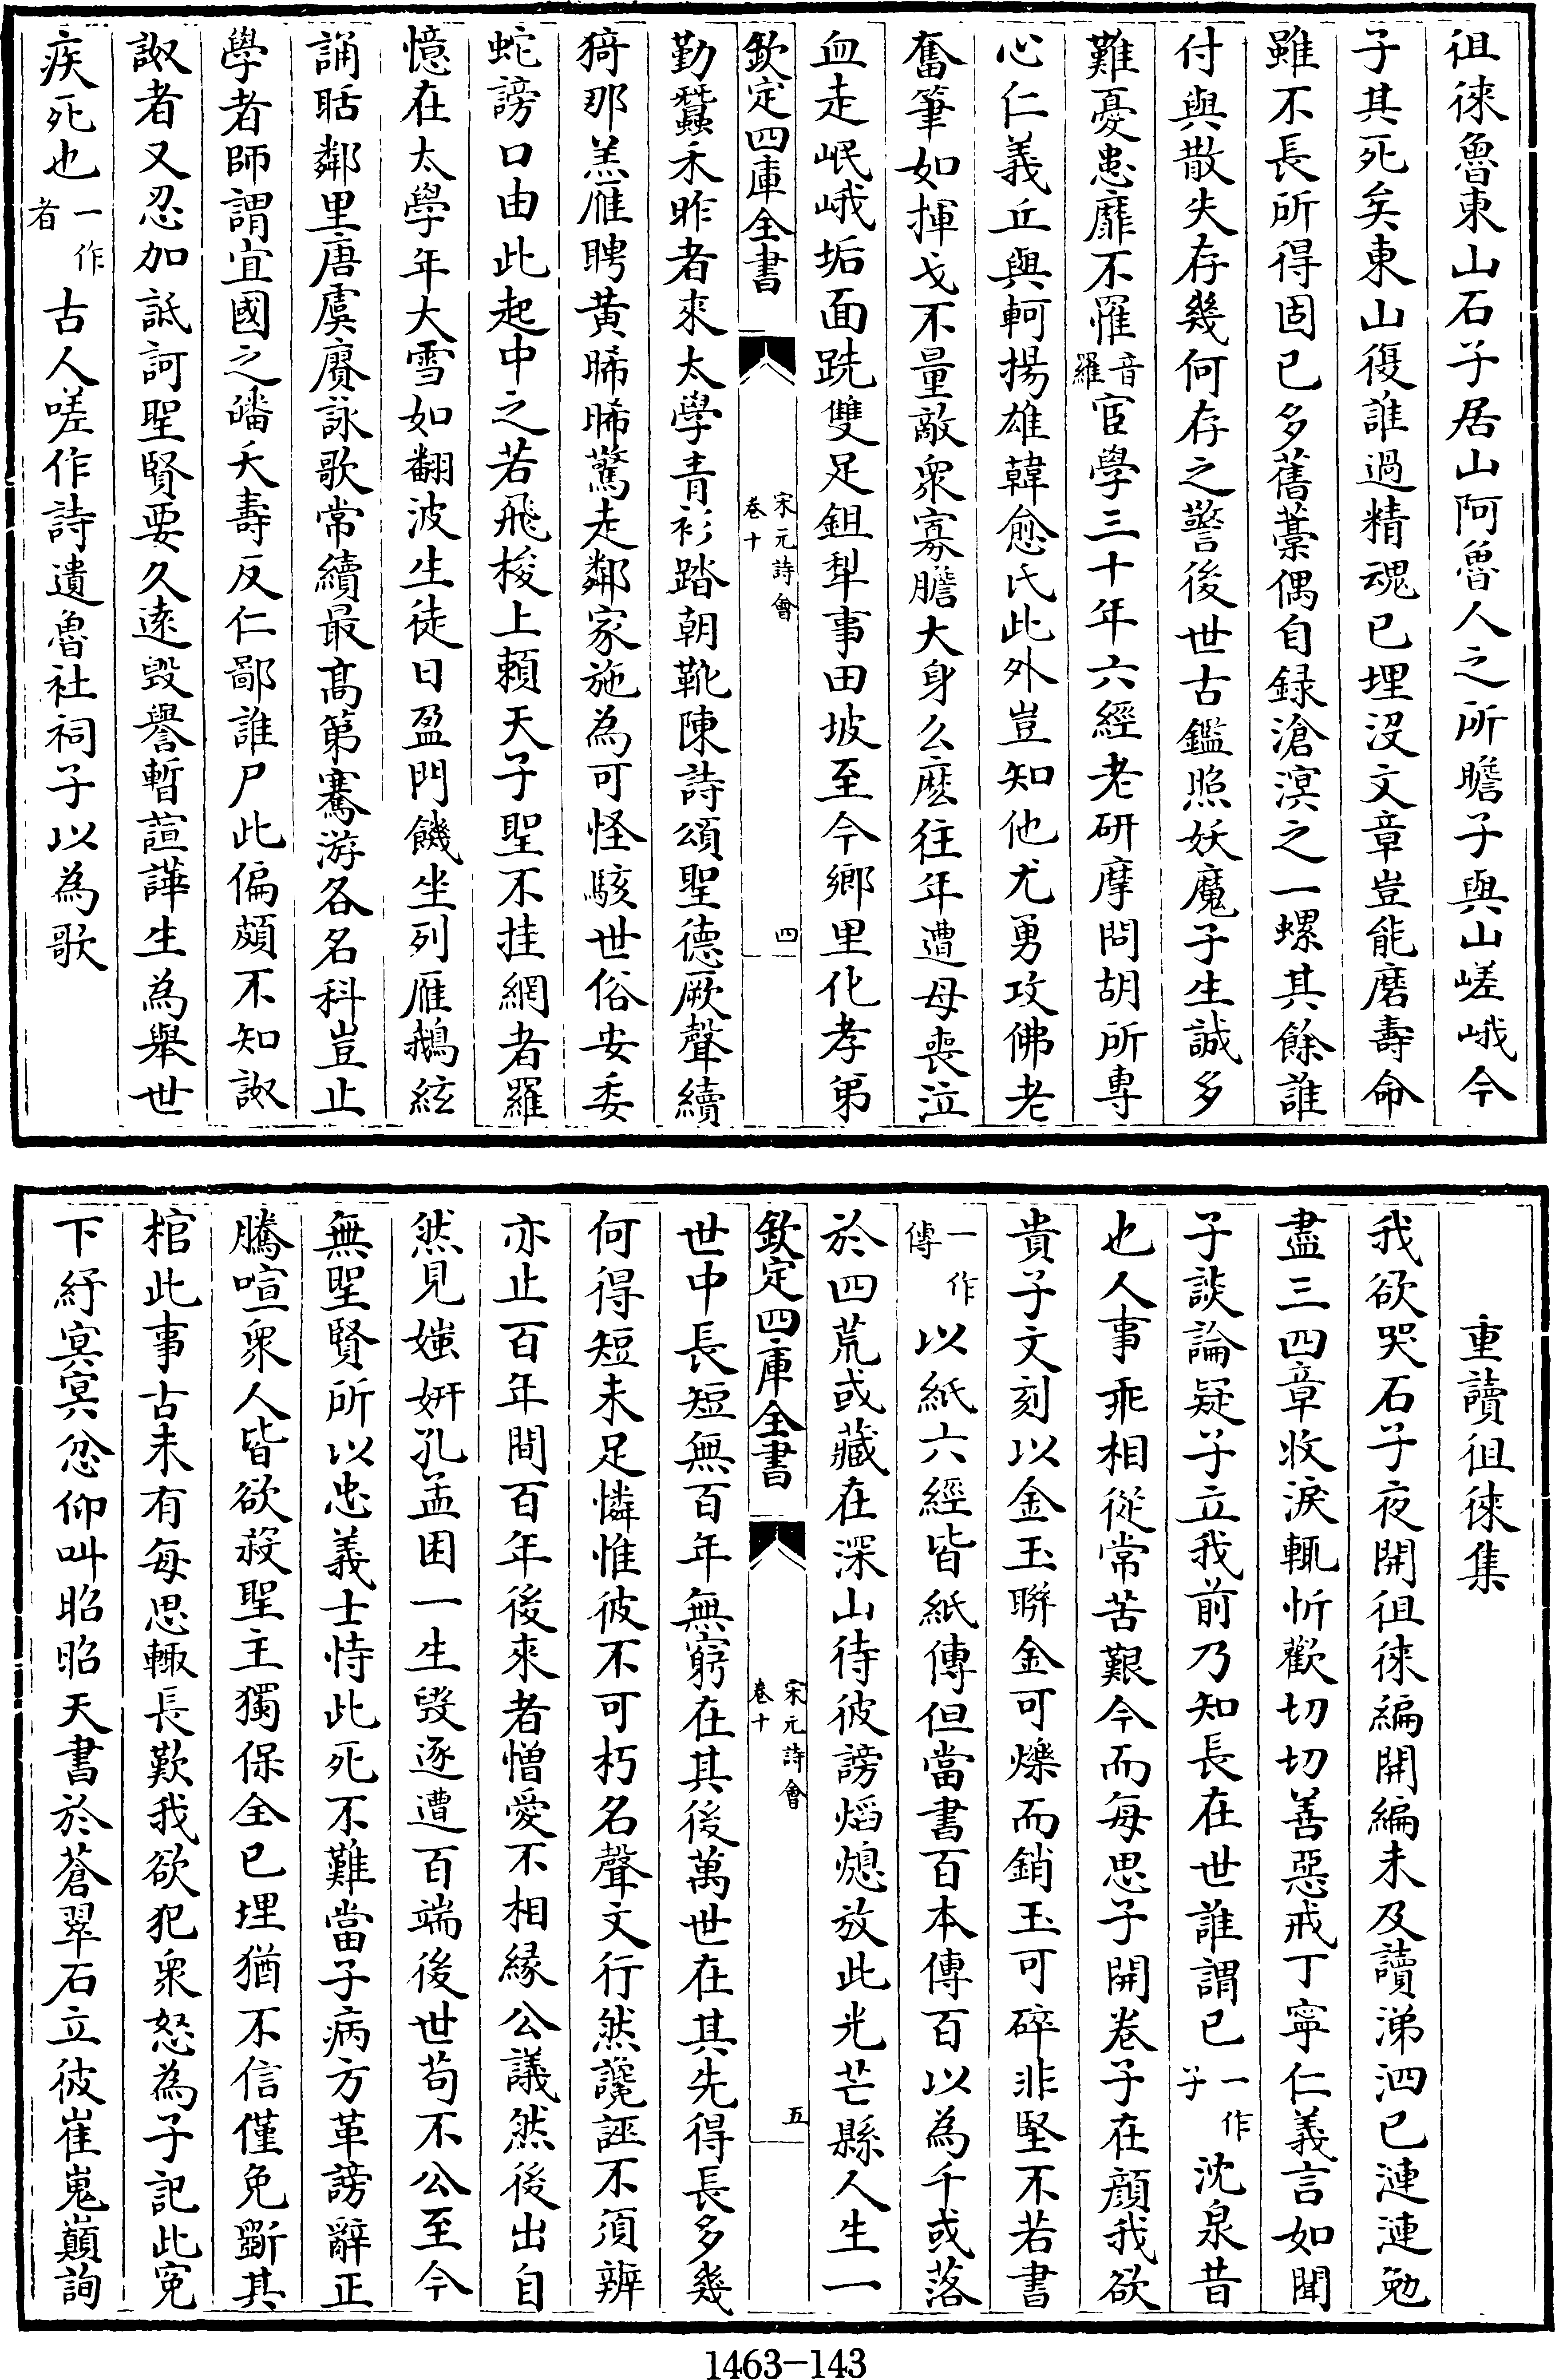 徂徠魯東山石子居山阿魯人之所瞻子與山嵯峨今
子其死矣東山復誰過精魂已埋沒文章豈能磨壽命
雖不長所得固已多舊藁偶自録滄溟之一螺其餘誰
付與散失存幾何存之警後世古鑑照妖魔子生誠多
難憂患靡不罹音羅宦學三十年六經老研摩問胡所專
心仁義丘與軻揚雄韓愈氏此外豈知他尤勇攻佛老
奮筆如揮戈不量敵衆寡膽大身么麽往年遭母喪泣
血走岷峨垢面跣雙足鉏犁事田坡至今鄉里化孝第
欽定四庫全書
宋元詩會
卷十
四
勤蠶禾昨者來太學青衫踏朝靴陳詩頌聖德厥聲續
猗那羔雁聘黃晞晞驚走鄰家施為可怪駭世俗安委
蛇謗口由此起中之若飛梭上頼天子聖不挂網者羅
憶在太學年大雪如翻波生徒日盈門饑坐列雁鵝絃
誦聒鄰里唐虞賡詠歌常續最高第騫游各名科豈止
學者師謂宜國之皤夭壽反仁鄙誰尸此偏頗不知詖
詖者又忍加詆訶聖賢要久遠毀譽暫諠譁生為舉世
疾死也一作者古人嗟作詩遺魯社祠子以為歌
重讀徂徠集
我欲哭石子夜開徂徠編開編未及讀涕泗已漣漣勉
盡三四章收淚輒忻歡切切善惡戒丁寧仁義言如聞
子談論疑子立我前乃知長在世誰謂已一作子沈泉昔
也人事乖相從常苦艱今而每思子開卷子在顔我欲
貴子文刻以金玉聯金可爍而銷玉可碎非堅不若書
一作傳以紙六經皆紙傳但當書百本傳百以為千或落
於四荒或藏在深山待彼謗熖熄放此光芒縣人生一
欽定四庫全書
宋元詩會
卷十
五
世中長短無百年無窮在其後萬世在其先得長多幾
何得短未足憐惟彼不可朽名聲文行然讒誣不須辨
亦止百年間百年後來者憎愛不相緣公議然後出自
然見媸妍孔孟困一生毀逐遭百端後世苟不公至今
無聖賢所以忠義士恃此死不難當子病方革謗辭正
騰喧衆人皆欲殺聖主獨保全已埋猶不信僅免斵其
棺此事古未有每思輒長歎我欲犯衆怒為子記此寃
下紓冥冥忿仰叫昭昭天書於蒼翠石立彼崔嵬巔詢
1463-143